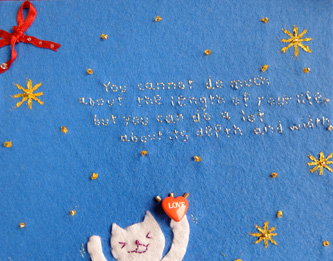 You cannot do much
about the length of your life,
but you can do a lot
about its depth and width.
LOVE